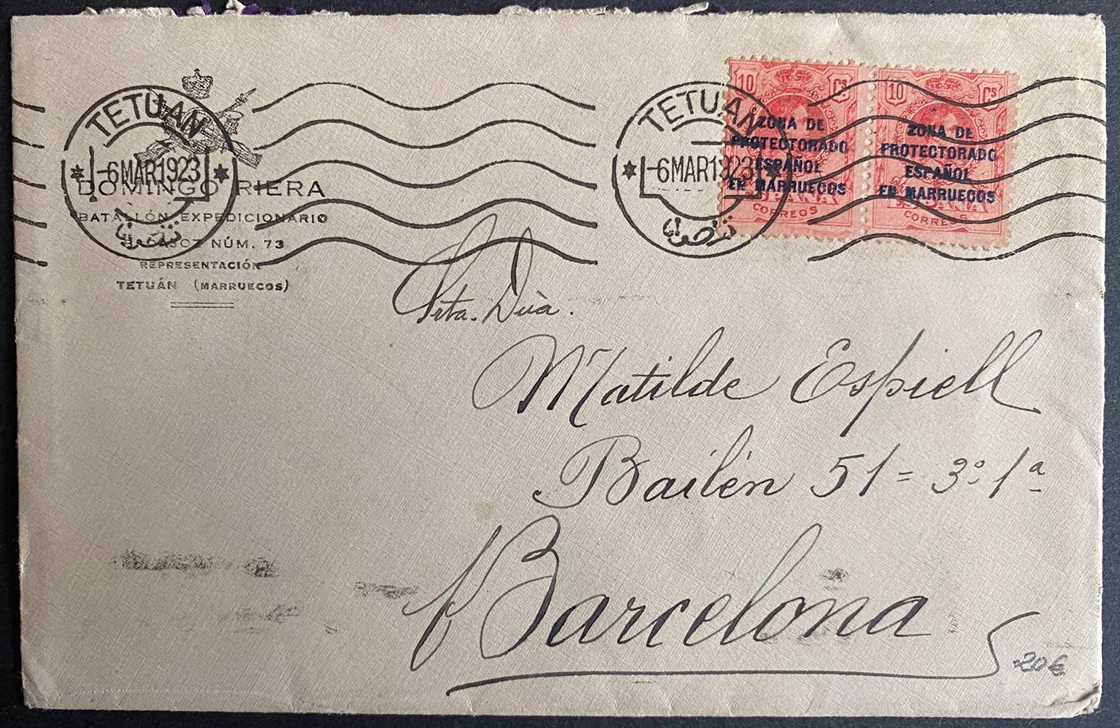 TETUAN
-6MAR1923
DOMINGO RIERA
BATALLÓN EXPEDICIONARIO
NÚM. 73
REPRESENTACIÓN
TETUÁN (MARRUECOS)
TETUAN
-6MAR1923
10 Cs
ZONA DE
PROTECTORADO
ESPAÑOL
EN MARRUECOS
CORREOS
10 Cs
ZONA DE
PROTECTORADO
ESPAÑOL
EN MARRUECOS
CORREOS
Srta. Dña.
Matilde Espiell
Bailén 51 = 3º 1ª
Barcelona
20€